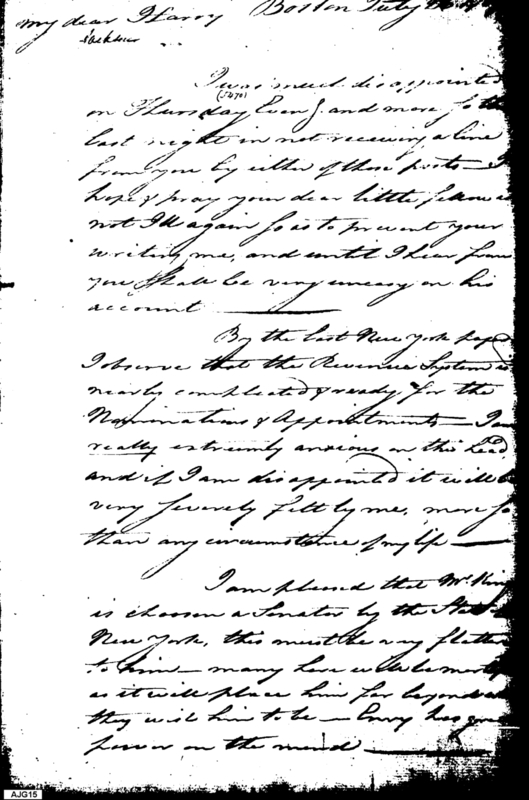 Boston July
my dear Harry
Jackson
I was much disappointed
(5470)
on Thursday Eveng. and more so the
last night in not receiving a line
from you by either of those posts — I
hope & pray your dear little fellow is
not Ill again so as to prevent your
writing me, and until I hear from
you shall be very uneasy on his
account
By the last New York paper
I observe that the Revenue System is
nearly compleated & ready, for the
Nominations & Appointments — I am
really extremly anxious on this head,
and if I am disappointed it will be
very severely felt by me, more so
than any circumstance of my life —
I am pleased that Mr. King
is choosen a Senator by the State
New York, this must be a very
to him — many here will be
as it will place him far beyond
they wish him to be — Envy has great
power on the mind
AJG15